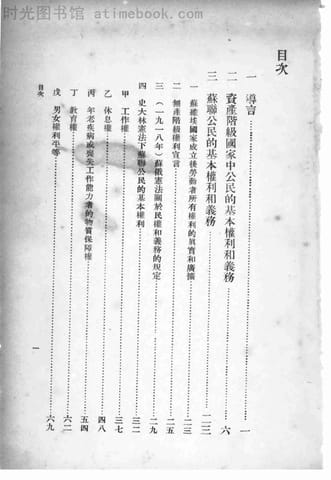 时光图书馆 - atimebook.com
目次
一 導言……一
二 資產階級國家中公民的基本權利和義務……六
三 蘇聯公民的基本權利和義務……二三
一 蘇維埃國家成立後勞動者所有權利的真實和廣擴……二三
二 無產階級權利宣言……二五
三 (一九一八年)蘇俄憲法關於民權和義務的規定……二九
四 史大林憲法下蘇聯公民的基本權利……三二
甲 工作權……三七
乙 休息權……四八
丙 年老疾病或喪失工作能力者的物質保障權……五四
丁 教育權……六二
戊 男女權利平等……六九
目次
一